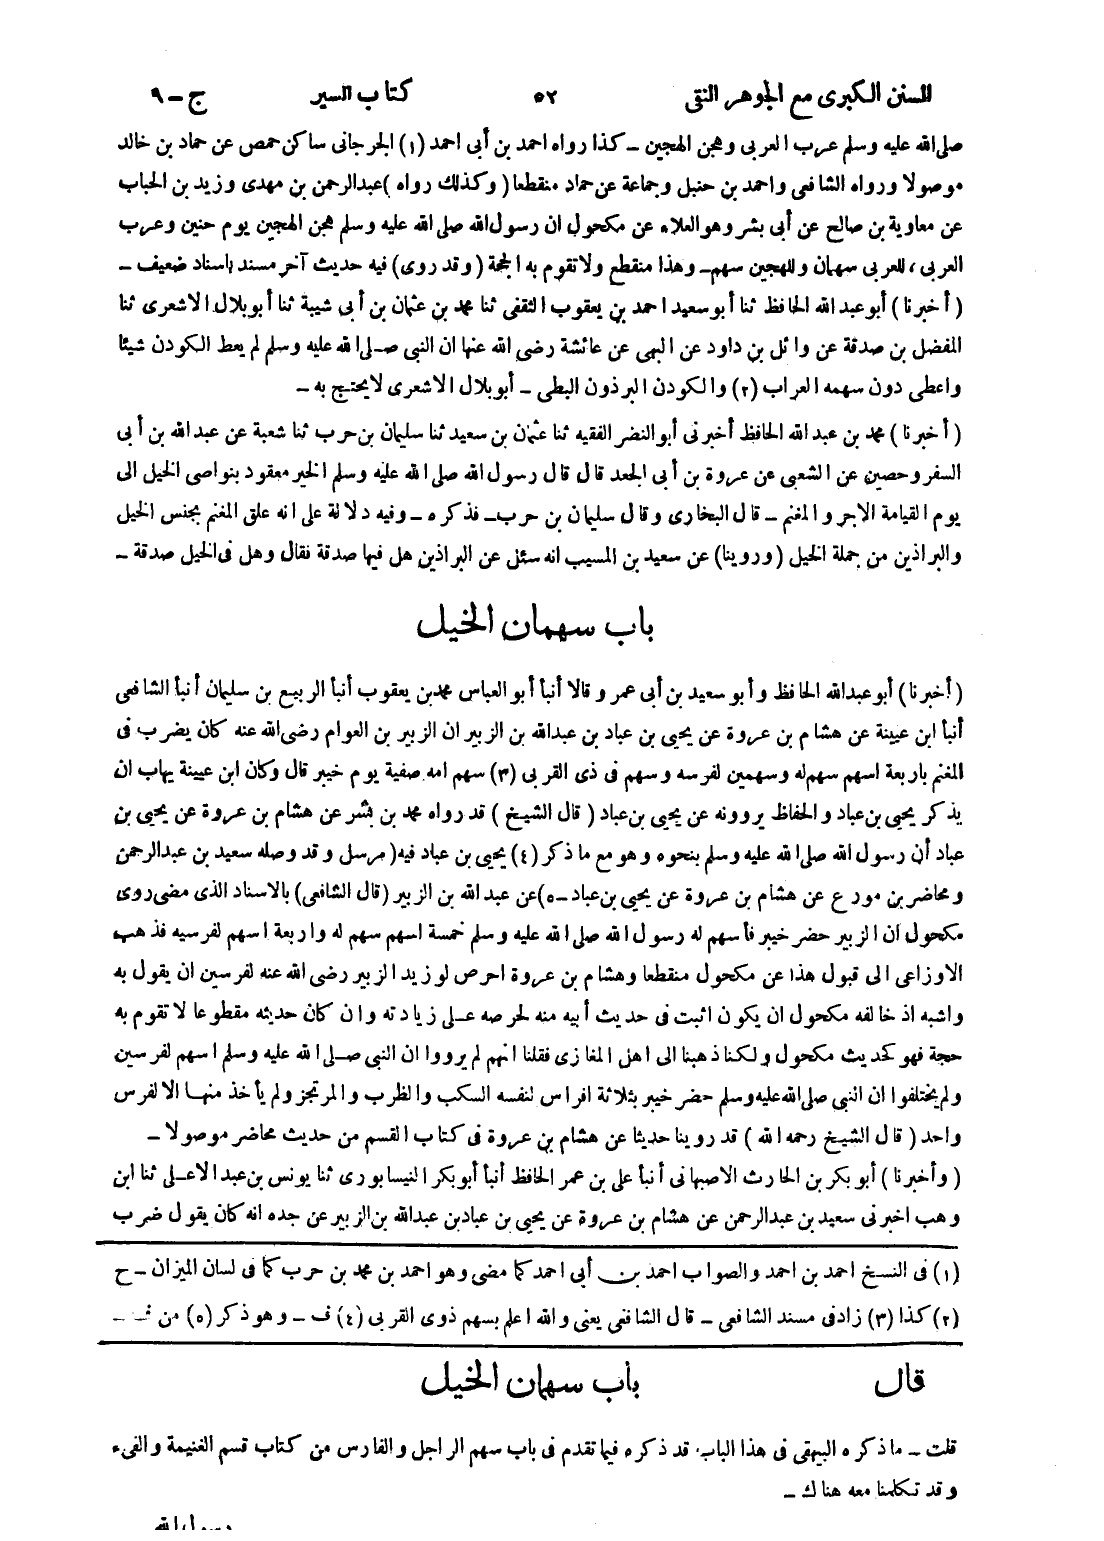 السنن الكبرى مع الجوهر النقى ٥٢ كتاب السير ج - ٩
صلى الله عليه وسلم عرب العربى وهجن الهجين - كذا رواه احمد بن أبى احمد (١) الجرجانى ساكن حمص عن حماد بن خالد
موصولا ورواه الشافعى واحمد بن حنبل وجماعة عن حماد منقطعا (وكذلك رواه) عبدالرحمن بن مهدى وزيد بن الحباب
عن معاوية بن صالح عن أبى بشر وهو العلاء عن مكحول ان رسول الله صلى الله عليه وسلم هجن الهجين يوم حنين وعرب
العربى، للعربى سهمان وللهجين سهم - وهذا منقطع ولا تقوم به الحجة (وقد روى) فيه حديث آخر مسند باسناد ضعيف -
(أخبرنا) أبو عبد الله الحافظ ثنا أبو سعيد احمد بن يعقوب الثقفى ثنا محمد بن عثمان بن أبى شيبة ثنا أبو بلال الاشعرى ثنا
المفضل بن صدقة عن وائل بن داود عن البهى عن عائشة رضى الله عنها ان النبى صلى الله عليه وسلم لم يعط الكودن شيئا
واعطى دون سهمه العراب (٢) والكودن البرذون البطى - أبو بلال الاشعرى لا يحتج به -
(أخبرنا) محمد بن عبد الله الحافظ أخبرنى أبو النضر الفقيه ثنا عثمان بن سعيد ثنا سليمان بن حرب ثنا شعبة عن عبد الله بن أبى
السفر وحصين عن الشعبى عن عروة بن أبى الجعد قال قال رسول الله صلى الله عليه وسلم الخير معقود بنواصى الخيل الى
يوم القيامة الاجر والمغنم - قال البخارى وقال سليمان بن حرب - فذكره - وفيه دلالة على انه علق المغنم بجنس الخيل
والبراذين من جملة الخيل (وروينا) عن سعيد بن المسيب انه سئل عن البراذين هل فيها صدقة فقال وهل فى الخيل صدقة -
باب سهمان الخيل
(أخبرنا) أبو عبدالله الحافظ وأبو سعيد بن أبى عمرو قالا أنبأ أبو العباس محمد بن يعقوب أنبأ الربيع بن سليمان أنبأ الشافعى
أنبأ ابن عيينة عن هشام بن عروة عن يحيى بن عباد بن عبدالله بن الزبير ان الزبير بن العوام رضى الله عنه كان يضرب فى
المغنم باربعة اسهم سهم له وسهمين لفرسه وسهم فى ذى القربى (٣) سهم امه صفية يوم خيبر قال وكان ابن عيينة يهاب ان
يذكر يحيى بن عباد والحفاظ يروونه عن يحيى بن عباد (قال الشيخ) قد رواه محمد بن بشر عن هشام بن عروة عن يحيى بن
عباد أن رسول الله صلى الله عليه وسلم بنحوه وهو مع ما ذكر (٤) يحيى بن عباد فيه (مرسل وقد وصله سعيد بن عبدالرحمن
ومحاضر بن مورع عن هشام بن عروة عن يحيى بن عباد -٥) عن عبد الله بن الزبير (قال الشافعى) بالاسناد الذى مضى روى
مكحول ان الزبير حضر خيبر فأسهم له رسول الله صلى الله عليه وسلم خمسة اسهم سهم له واربعة اسهم لفرسيه فذهب
الاوزاعى الى قبول هذا عن مكحول منقطعا وهشام بن عروة احرص لو زيد الزبير رضى الله عنه لفرسين ان يقول به
واشبه اذ خالفه مكحول ان يكون اثبت فى حديث أبيه منه لحرصه على زيادته وان كان حديثه مقطوعا لا تقوم به
حجة فهو كحديث مكحول ولكنا ذهبنا الى اهل المغازى فقلنا انهم لم يرووا ان النبى صلى الله عليه وسلم اسهم لفرسين
ولم يختلفوا ان النبى صلى الله عليه وسلم حضر خيبر بثلاثة افراس لنفسه السكب والظرب والمرتجز ولم يأخذ منها الا لفرس
واحد (قال الشيخ رحمه الله) قد روينا حديثا عن هشام بن عروة فى كتاب القسم من حديث محاضر موصولا -
(وأخبرنا) أبو بكر بن الحارث الاصبهانى أنبأ على بن عمر الحافظ أنبأ أبو بكر النيسابورى ثنا يونس بن عبد الاعلى ثنا ابن
وهب اخبرنى سعيد بن عبدالرحمن عن هشام بن عروة عن يحيى بن عباد بن عبدالله بن الزبير عن جده انه كان يقول ضرب
(١) فى النسخ احمد بن احمد والصواب احمد بن أبى احمد كما مضى وهو احمد بن محمد بن حرب كما فى لسان الميزان - ح
(٢) كذا (٣) زاد فى مسند الشافعى - قال الشافعى يعنى والله اعلم بسهم ذوى القربى (٤) ف - وهو ذكر (٥) من ف -
قال باب سهمان الخيل
قلت - ما ذكره البيهقى فى هذا الباب قد ذكره فيما تقدم فى باب سهم الراجل والفارس من كتاب قسم الغنيمة والفىء
وقد تكلمنا معه هناك -
رسول الله